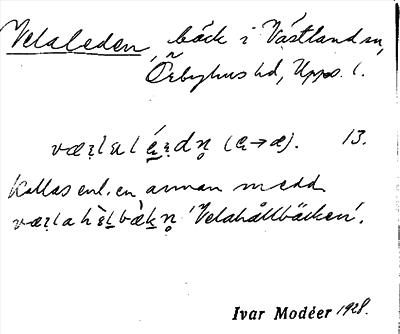 Velaleden, bäck i Västland sn,
Örbyhus hd, Upps. l.
væzlɛl é̠zdn̥ (ɛ→æ). 13.
Kallas enl. en annan medd.
væzlahɛ̀l̠bæ̀k̠n̥ 'Velahållbäcken'.
Ivar Modéer 1928.